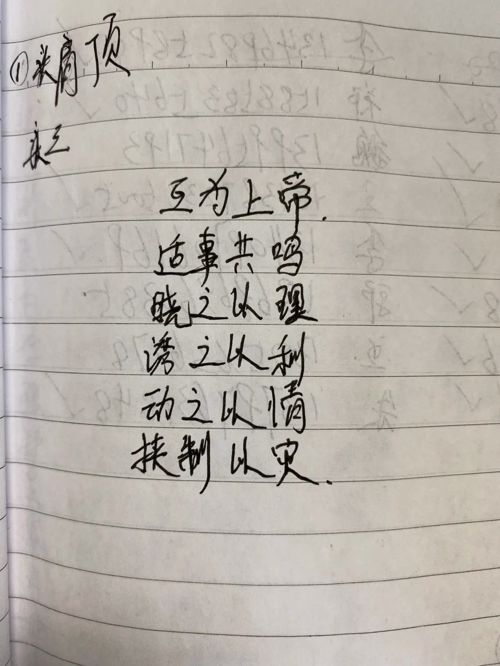 ①头肩顶
互为上帝.
适事共鸣
晓之以理
诱之以利
动之以情
挟制以灾.